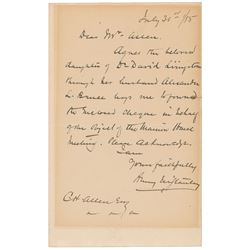 July 30th 1/85
Dear Mr. Allen.
Agnes the beloved
daughter of Dr David Livingstone
through her husband Alexander
L. Bruce begs me to forward
the enclosed cheque in behalf
of the object of the Mansion House
Meeting. Please acknowledge.
I am
Yours faithfully
Henry M Stanley
C. H. Allen Esq